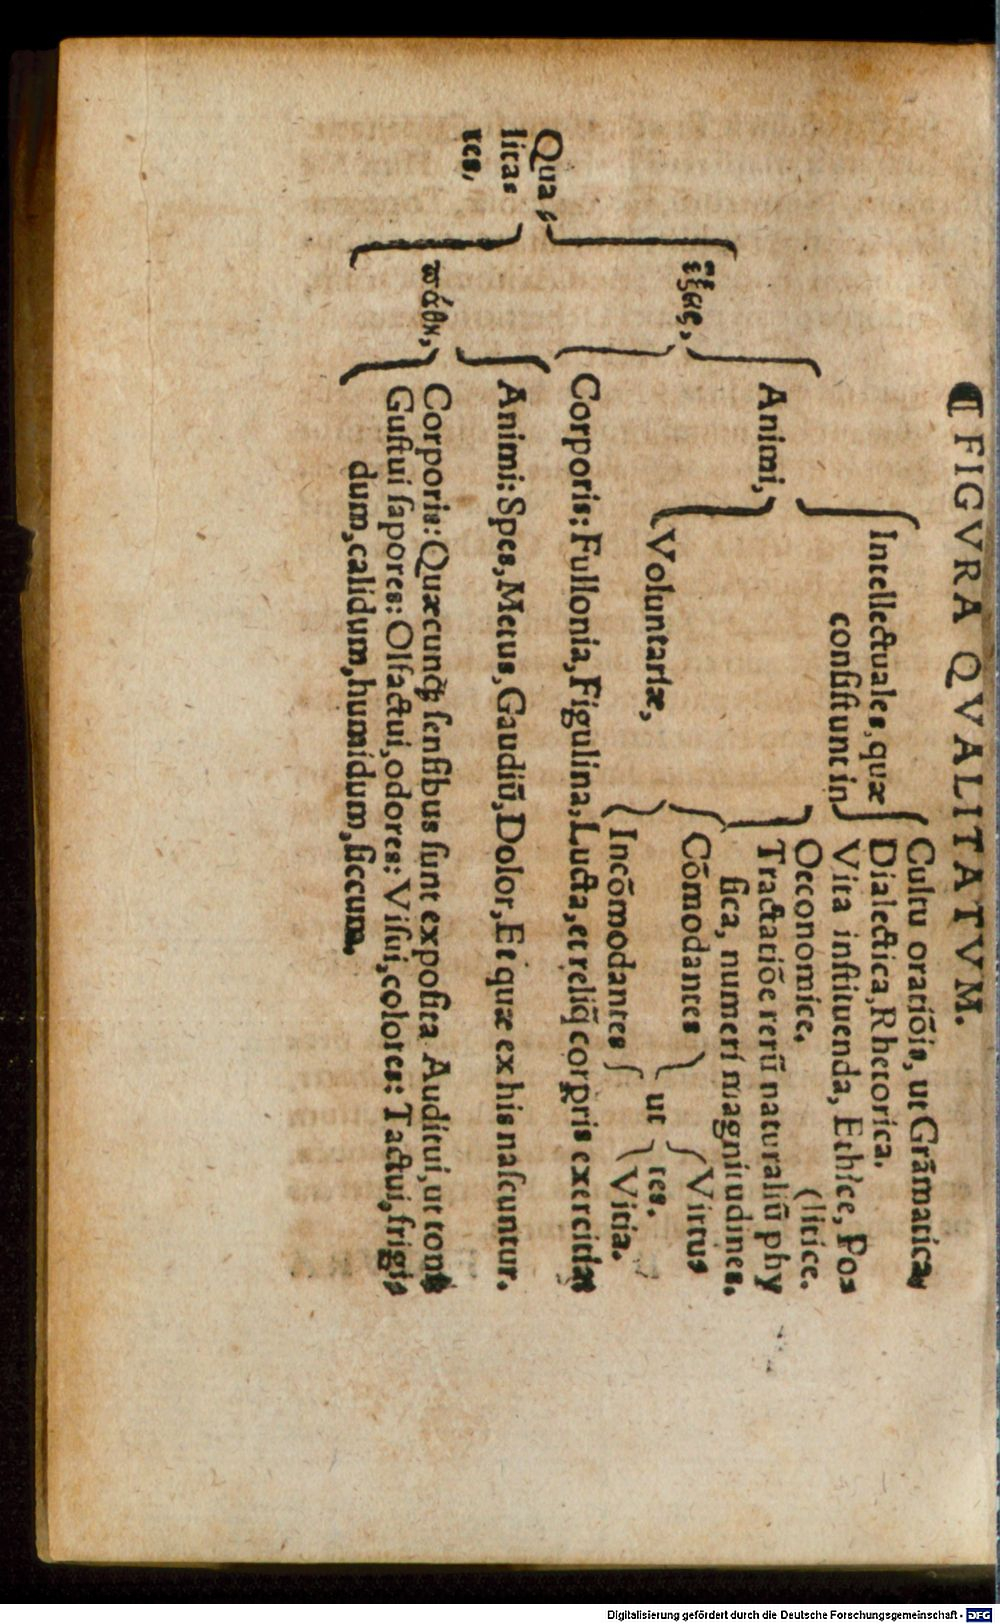 ¶ FIGVRA QVALITATVM.
Qua⸗
litas
tes,
ἕξεις,
πάθη,
Animi,
Intellectuales, quæ
consistunt in
Cultu oratiōis, ut Grāmatica,
Dialectica, Rhetorica.
Vita instituenda, Ethice, Po⸗
Oeconomice. (litice.
Tractatiōe rerū naturaliū phy
sica, numeri magnitudines.
Voluntariæ,
Cōmodantes
Incōmodantes
ut
Virtu⸗
tes.
Vitia.
Corporis: Fullonia, Figulina, Lucta, et reliq̄ corpris exercitia
Animi: Spes, Metus, Gaudiū, Dolor, Et quæ ex his nascuntur.
Corporis: Quæcunq̃ sensibus sunt exposita Auditui, ut toni
Gustui sapores: Olfactui, odores: Visui, colores: Tactui, frigi⸗
dum, calidum, humidum, siccum.
Digitalisierung gefördert durch die Deutsche Forschungsgemeinschaft - DFG